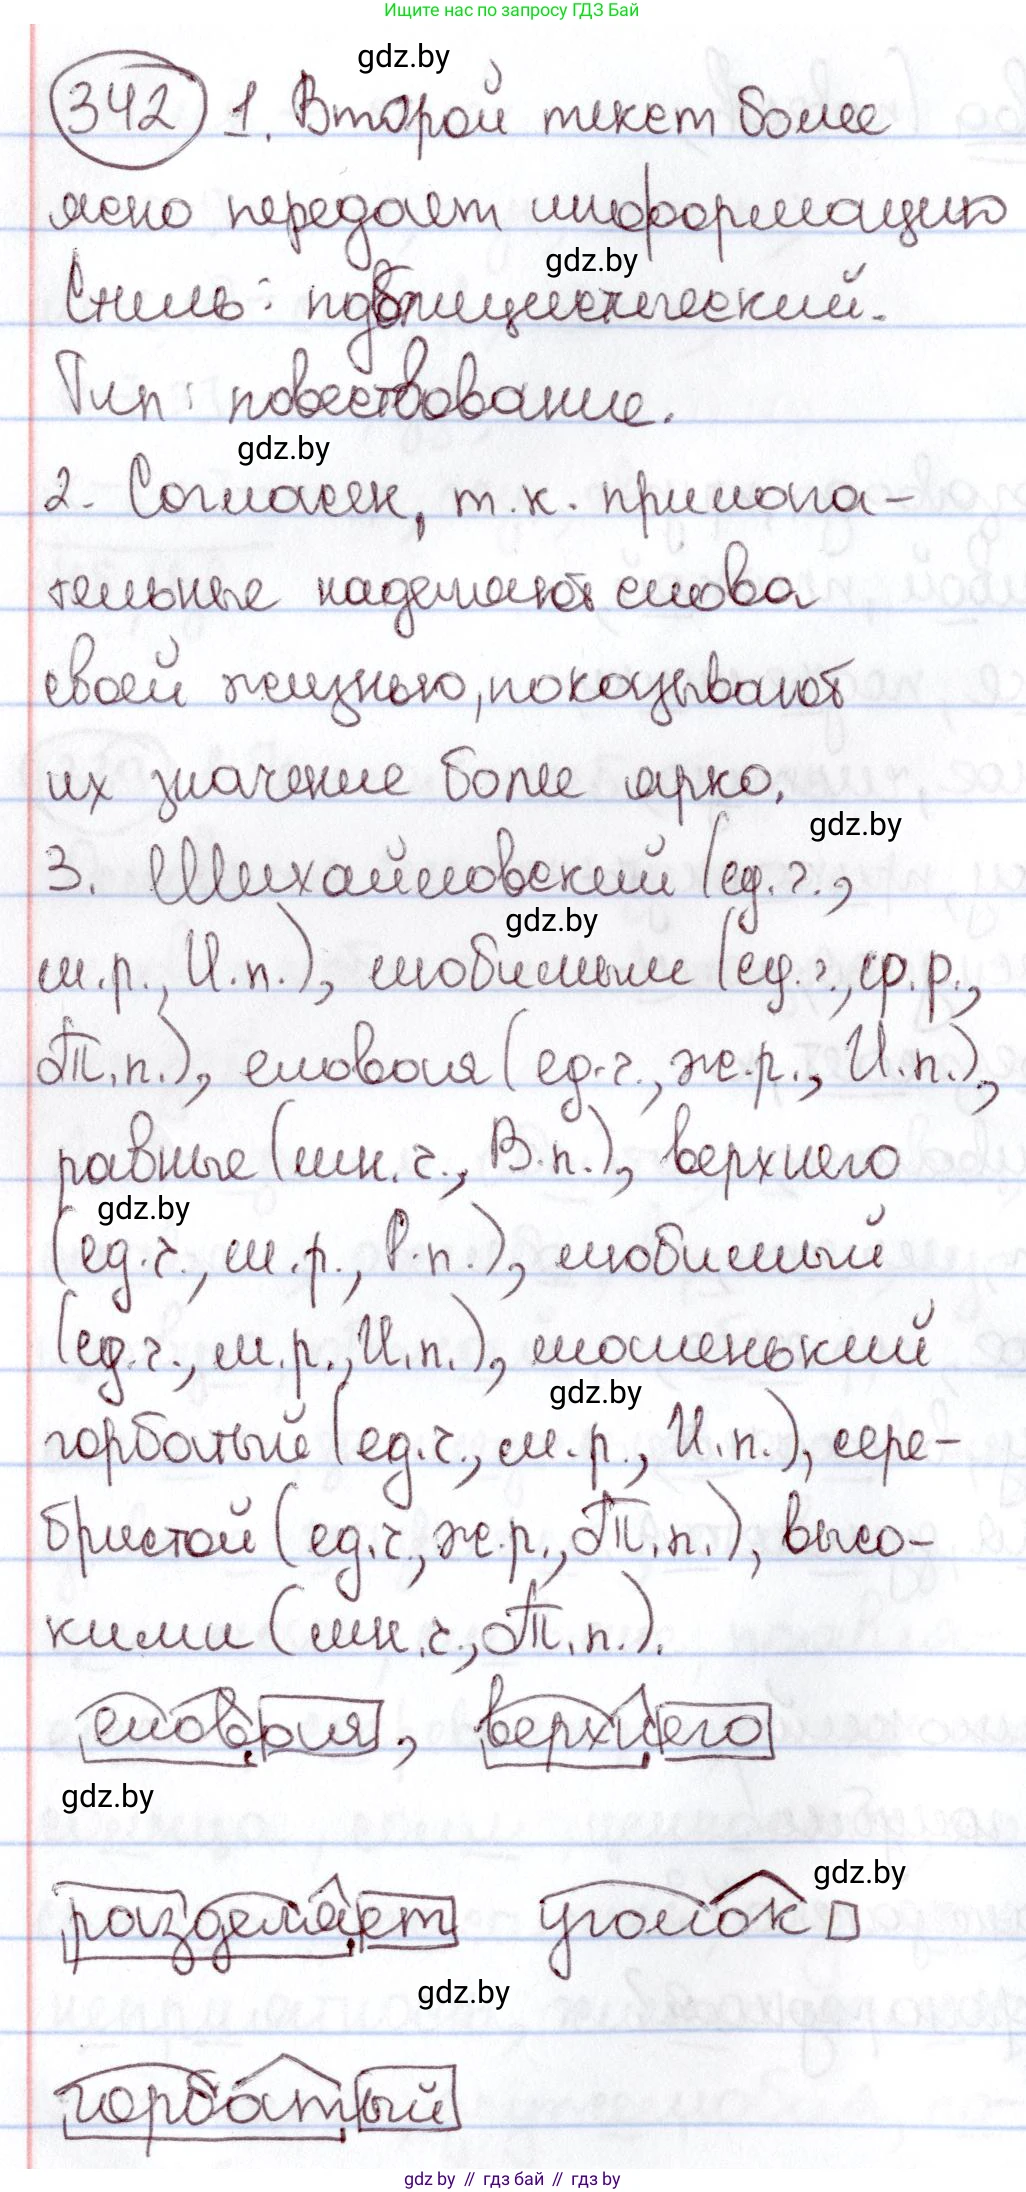 Ищите нас по запросу ГДЗ Бай
gdz.by
342 1. Второй текст более
ясно передает информацию
gdz.by
Стиль: публицистический.
Тип: повествование.
gdz.by
2. Согласен, т.к. прилага-
тельные наделяют слова
своей жизнью, показывают
их значение более ярко.
gdz.by
3. Михайловский (ед.ч.,
gdz.by
м.р., И.п.), любимым (ед.ч., ср.р.,
Т.п.), еловая (ед.ч., ж.р., И.п.),
равные (мн.ч., В.п.), верхнего
gdz.by
(ед.ч., м.р., Р.п.), любимый
(ед.ч., м.р., И.п.), маленький
gdz.by
горбатый (ед.ч., м.р., И.п.), сере-
бристой (ед.ч., ж.р., Т.п.), высо-
кими (мн.ч., Т.п.).
еловая, верхнего
gdz.by
gdz.by
разделяет уголок
gdz.by
горбатый
gdz by // гдз бай // гdz by